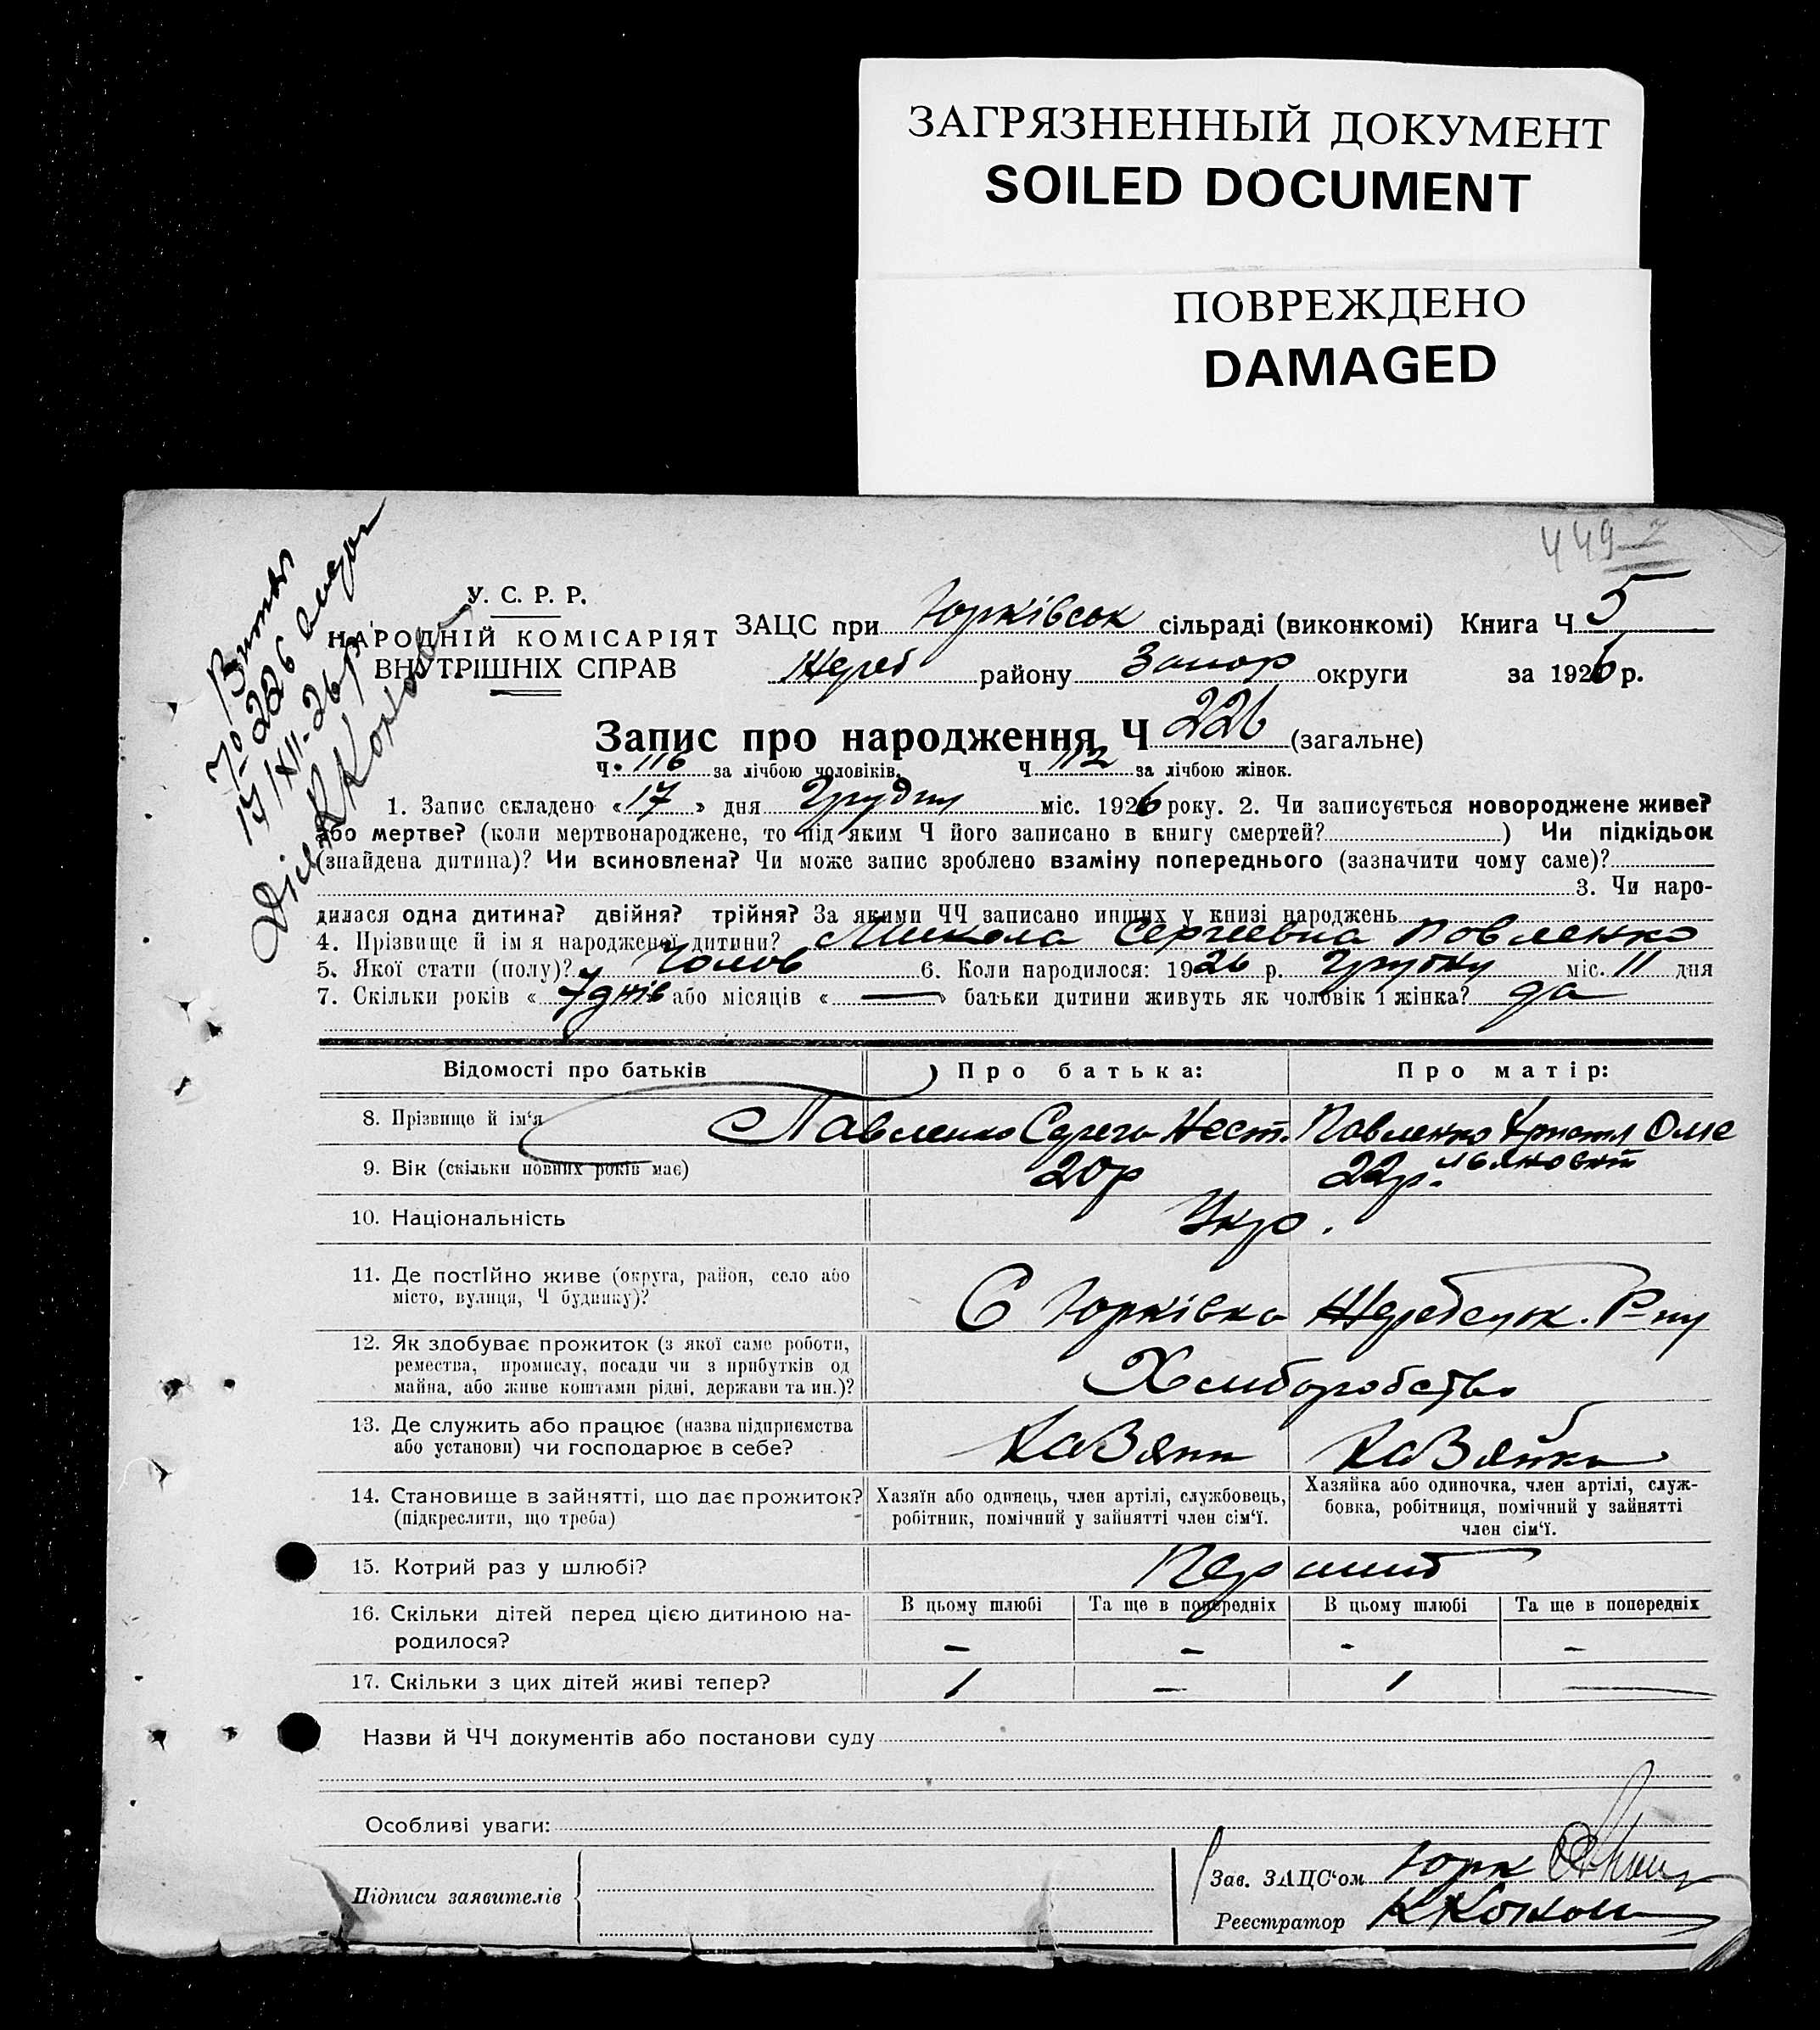 ЗАГРЯЗНЕННЫЙ ДОКУМЕНТ
SOILED DOCUMENT
ПОВРЕЖДЕНО
DAMAGED
449
У. С. Р. Р.
НАРОДНІЙ КОМІСАРІЯТ
ВНУТРІШНІХ СПРАВ
226
17/XII-26р
ЗАЦС при Юрківськ сільраді (виконкомі) Книга Ч 5
Жереб району Запор округи за 1926 р.
Запис про народження Ч 226 (загальне)
Ч. 116 за лічбою чоловіків. Ч 112 за лічбою жінок.
1. Запис складено «17» дня Грудня міс. 1926 року. 2. Чи записується новороджене живе?
або мертве? (коли мертвонароджене, то під яким Ч його записано в книгу смертей? ) Чи підкідьок
(знайдена дитина)? Чи всиновлена? Чи може запис зроблено взаміну попереднього (зазначити чому саме)?
3. Чи наро-
дилася одна дитина? двійня? трійня? За якими ЧЧ записано инших у книзі народжень
4. Прізвище й ім я народженої дитини? Микола Сергієвна Повленко
5. Якої стати (полу)? Чолов 6. Коли народилося: 1926 р. Грудню міс. 11 дня
7. Скільки років «7 днів або місяців « — » батьки дитини живуть як чоловік і жінка? да
Відомості про батьків Про батька: Про матір:
8. Прізвище й ім'я Павленко Сергей Нест. Повленко
9. Вік (скільки повних років має) 20р 22р.
10. Національність Укр.
11. Де постійно живе (округа, район, село або
місто, вулиця, Ч будинку)?
С Юрківка Жеребецьк. Р-ну
12. Як здобуває прожиток (з якої саме роботи,
ремества, промислу, посади чи з прибутків од
майна, або живе коштами рідні, держави та ин.)?
Хлиборобство
13. Де служить або працює (назва підприємства
або установи) чи господарює в себе?
ХаЗяин ХаЗяйка
14. Становище в зайнятті, що дає прожиток?
(підкреслити, що треба)
Хазяїн або одинець, член артілі, службовець,
робітник, помічний у зайнятті член сім'ї.
Хазяйка або одиночка, член артілі, служ-
бовка, робітниця, помічний у зайнятті
член сім'ї.
15. Котрий раз у шлюбі? Перший
16. Скільки дітей перед цією дитиною на-
родилося?
В цьому шлюбі Та ще в попередніх В цьому шлюбі Та ще в попередніх
– – – –
17. Скільки з цих дітей живі тепер? 1 — 1 —
Назви й ЧЧ документів або постанови суду
Особливі уваги:
Підписи заявителів
Зав. ЗАЦС'ом Юрк
Реєстратор